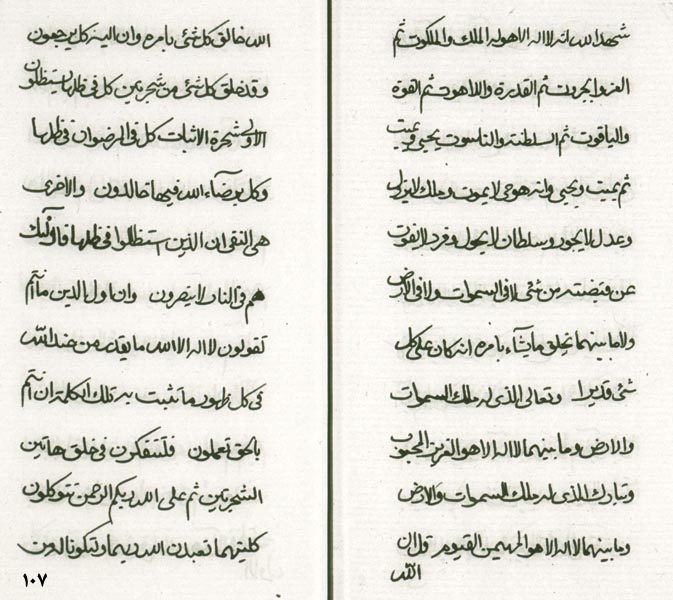 شهد الله انه لا اله الا هو له الملك والملكوت ثم
العز والجبروت ثم القدرة واللاهوت ثم القوة
والياقوت ثم السلطنة والناسوت يحيي ويميت
ثم يميت ويحيي وانه هو حي لا يموت وملك لا يزول
وعدل لا يجور وسلطان لا يحول وفرد لا يفوت
عن قبضته من شئ لا في السموات ولا في الارض
ولا ما بينهما يخلق ما يشاء بامره انه كان على كل
شئ قديرا وتعالى الذي له ملك السموات
والارض وما بينهما لا اله الا هو العزيز المحبوب
وتبارك الذي له ملك السموات والارض
وما بينهما لا اله الا هو المهيمن القيوم قل ان
الله
الله خالق كل شئ بامره وان اليه كل يرجعون
وقد خلق كل شئ من شجرتين كل في ظلها يستظلون
الاولى شجرة الاثبات كل في الرضوان في ظلها
وكل برضاء الله فيها خالدون والاخرى
هي النفي ان الذين استظلوا في ظلها فاولئك
هم في النار لا ينصرون وان اول الدين ما انتم
تقولون لا اله الا الله ما يقدر من عند الله
في كل ظهور ما تثبت به تلك الكلمة ان انتم
بالحق تعملون فلتتفكرن في خلق هاتين
الشجرتين ثم على الله ربكم الرحمن تتوكلون
كلتيهما تعبدن الله ربهما
١٠٧